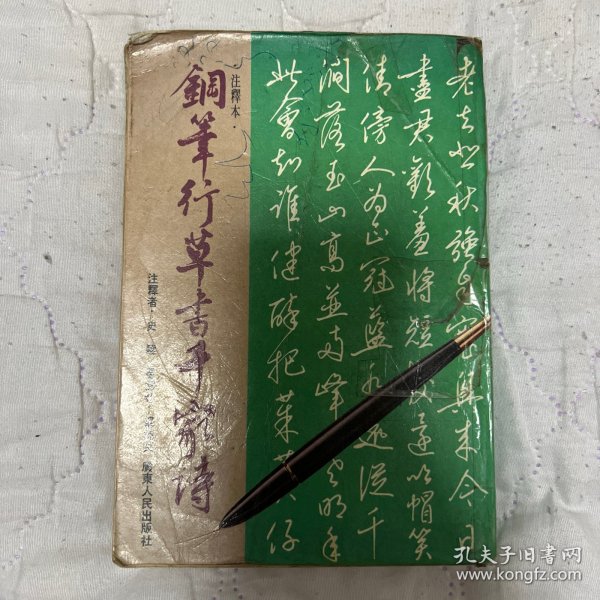 注釋本·
鋼筆行草書千家詩
注釋者·史
廣東人民出版社
老去悲秋強自寬興來今日
盡君歡羞將短髮還吹帽笑
倩傍人為正冠藍水遠從千
澗落玉山高並兩峰寒明年
此會知誰健醉把茱萸仔
孔夫子旧书网
www.kongfz.com